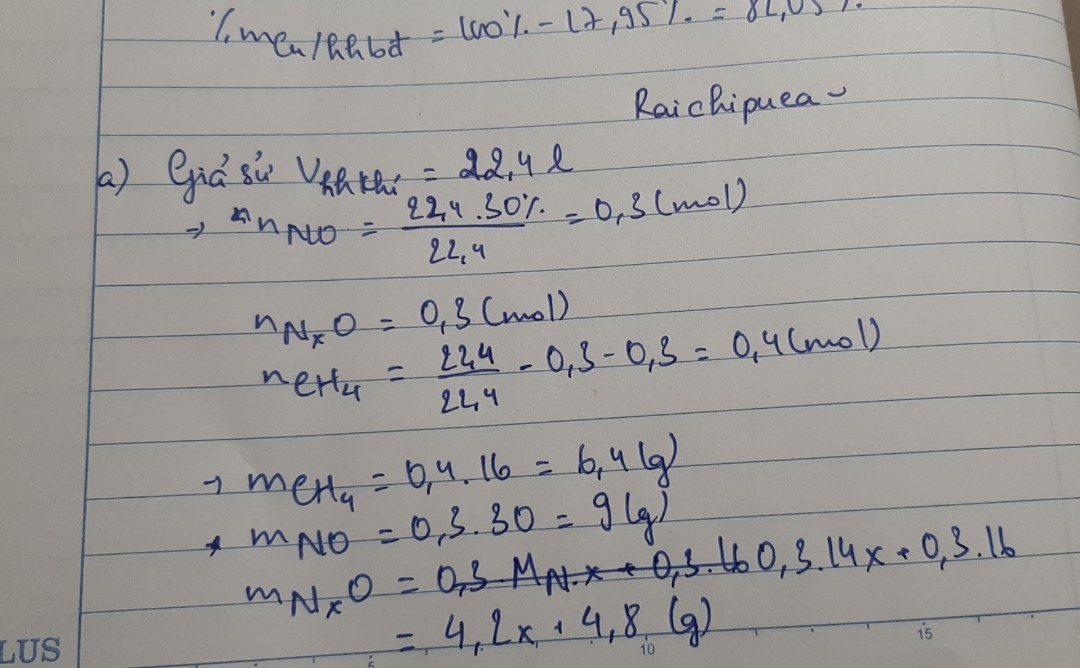 %mCu/hhbđ = 100% - 17,95% = 82,05%.
Raichipuea~
a) Giả sử Vhh khí = 22,4 l
→ nNO = 22,4.30% / 22,4 = 0,3 (mol)
nNxO = 0,3 (mol)
nCH4 = 22,4 / 22,4 - 0,3 - 0,3 = 0,4 (mol)
→ mCH4 = 0,4.16 = 6,4 (g)
mNO = 0,3.30 = 9 (g)
mNxO = 0,3.MN.x + 0,3.16 0,3.14x + 0,3.16
= 4,2x + 4,8 (g)
LUS
5 10 15